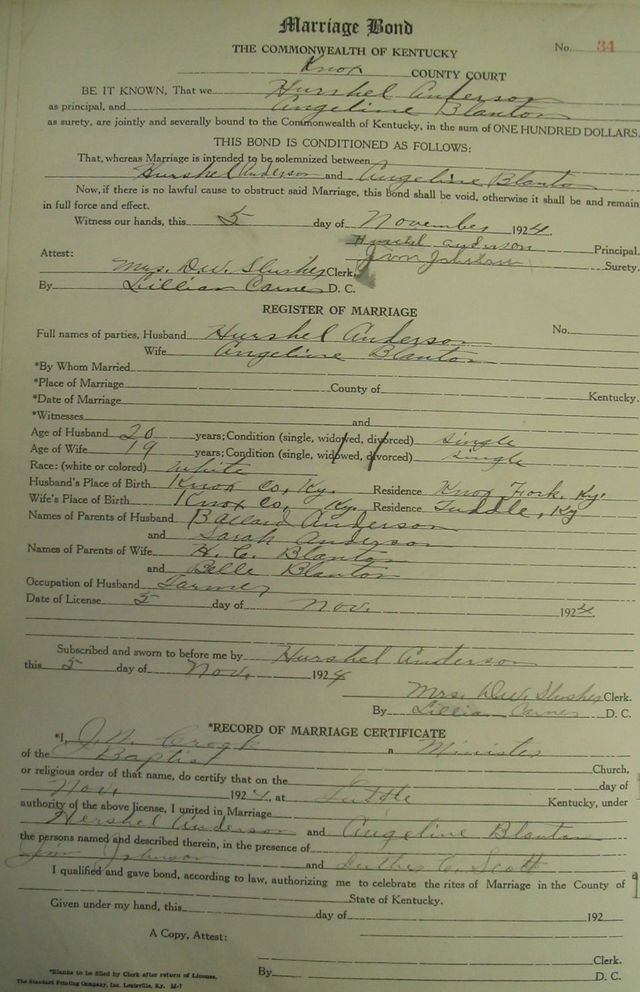 Marriage Bond
THE COMMONWEALTH OF KENTUCKY No. 34
Knox COUNTY COURT
BE IT KNOWN, That we Hurshel Anderson
as principal, and Angeline Blanton
as surety, are jointly and severally bound to the Commonwealth of Kentucky, in the sum of ONE HUNDRED DOLLARS.
THIS BOND IS CONDITIONED AS FOLLOWS:
That, whereas Marriage is intended to be solemnized between
Hurshel Anderson and Angeline Blanton
Now, if there is no lawful cause to obstruct said Marriage, this bond shall be void, otherwise it shall be and remain
in full force and effect.
Witness our hands, this 5 day of November 1924
Anderson Principal.
Attest: Jim Johnson Surety.
Mrs. D.W. Slusher Clerk,
By Lillian Carnes D. C.
REGISTER OF MARRIAGE
Full names of parties, Husband Hurshel Anderson No.
Wife Angeline Blanton
*By Whom Married
*Place of Marriage County of Kentucky.
*Date of Marriage
*Witnesses and
Age of Husband 20 years; Condition (single, widowed, divorced) single
Age of Wife 19 years; Condition (single, widowed, divorced) single
Race: (white or colored) White
Husband's Place of Birth Knox Co, Ky. Residence Knox Fork, Ky
Wife's Place of Birth Knox Co, Ky. Residence Tuddle, Ky
Names of Parents of Husband Ballard Anderson
and Sarah Anderson
Names of Parents of Wife H. C. Blanton
and Belle Blanton
Occupation of Husband Farmer
Date of License 5 day of Nov. 1924
Subscribed and sworn to before me by Hurshel Anderson
this 5 day of Nov. 1924
Mrs. D.W. Slusher Clerk.
By Lillian Carnes D. C.
*RECORD OF MARRIAGE CERTIFICATE
*I, a Minister
of the Baptist Church,
or religious order of that name, do certify that on the day of
Nov. 1924 at Tuttle Kentucky, under
authority of the above license, I united in Marriage
Hershel Anderson and Angeline Blanton
the persons named and described therein, in the presence of
Jim Johnson and Luther C. Scott
I qualified and gave bond, according to law, authorizing me to celebrate the rites of Marriage in the County of
State of Kentucky.
Given under my hand, this day of 192
A Copy, Attest:
Clerk.
By D. C.
*Blanks to be filled by Clerk after return of License.
The Standard Printing Company, Inc. Louisville, Ky. M-7